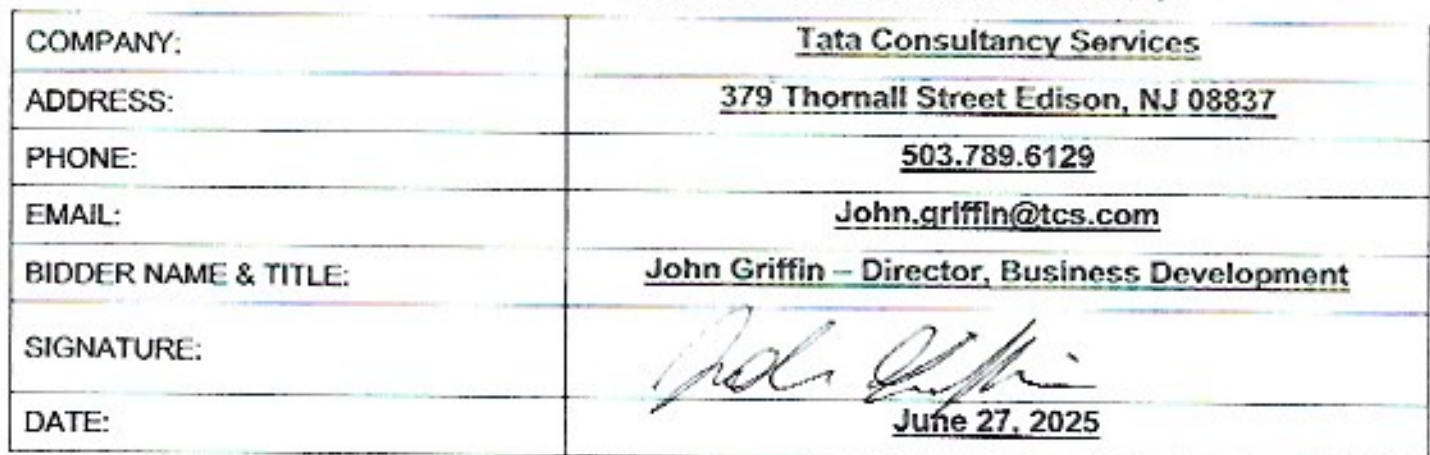 COMPANY: Tata Consultancy Services
ADDRESS: 379 Thornall Street Edison, NJ 08837
PHONE: 503.789.6129
EMAIL: John.griffin@tcs.com
BIDDER NAME & TITLE: John Griffin – Director, Business Development
SIGNATURE: John Griffin
DATE: June 27, 2025